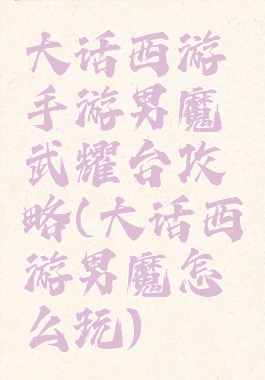 大话西游
手游男魔
武耀台攻
略(大话西
游男魔怎
么玩)